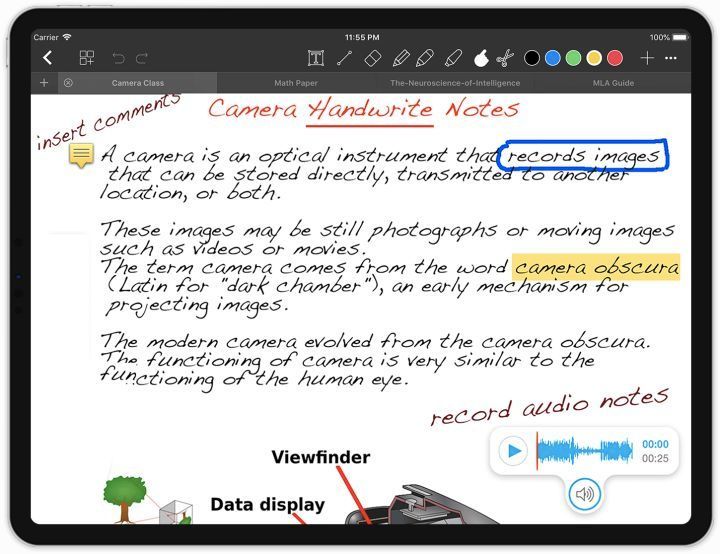 Carrier 11:55 PM 100%
Camera Class Math Paper The-Neuroscience-of-Intelligence MLA Guide
insert comments
Camera Handwrite Notes
A camera is an optical instrument that records images
that can be stored directly, transmitted to another
location, or both.
These images may be still photographs or moving images
such as videos or movies.
The term camera comes from the word camera obscura
(Latin for "dark chamber"), an early mechanism for
projecting images.
The modern camera evolved from the camera obscura.
The functioning of camera is very similar to the
functioning of the human eye.
record audio notes
00:00
00:25
Viewfinder
Data display